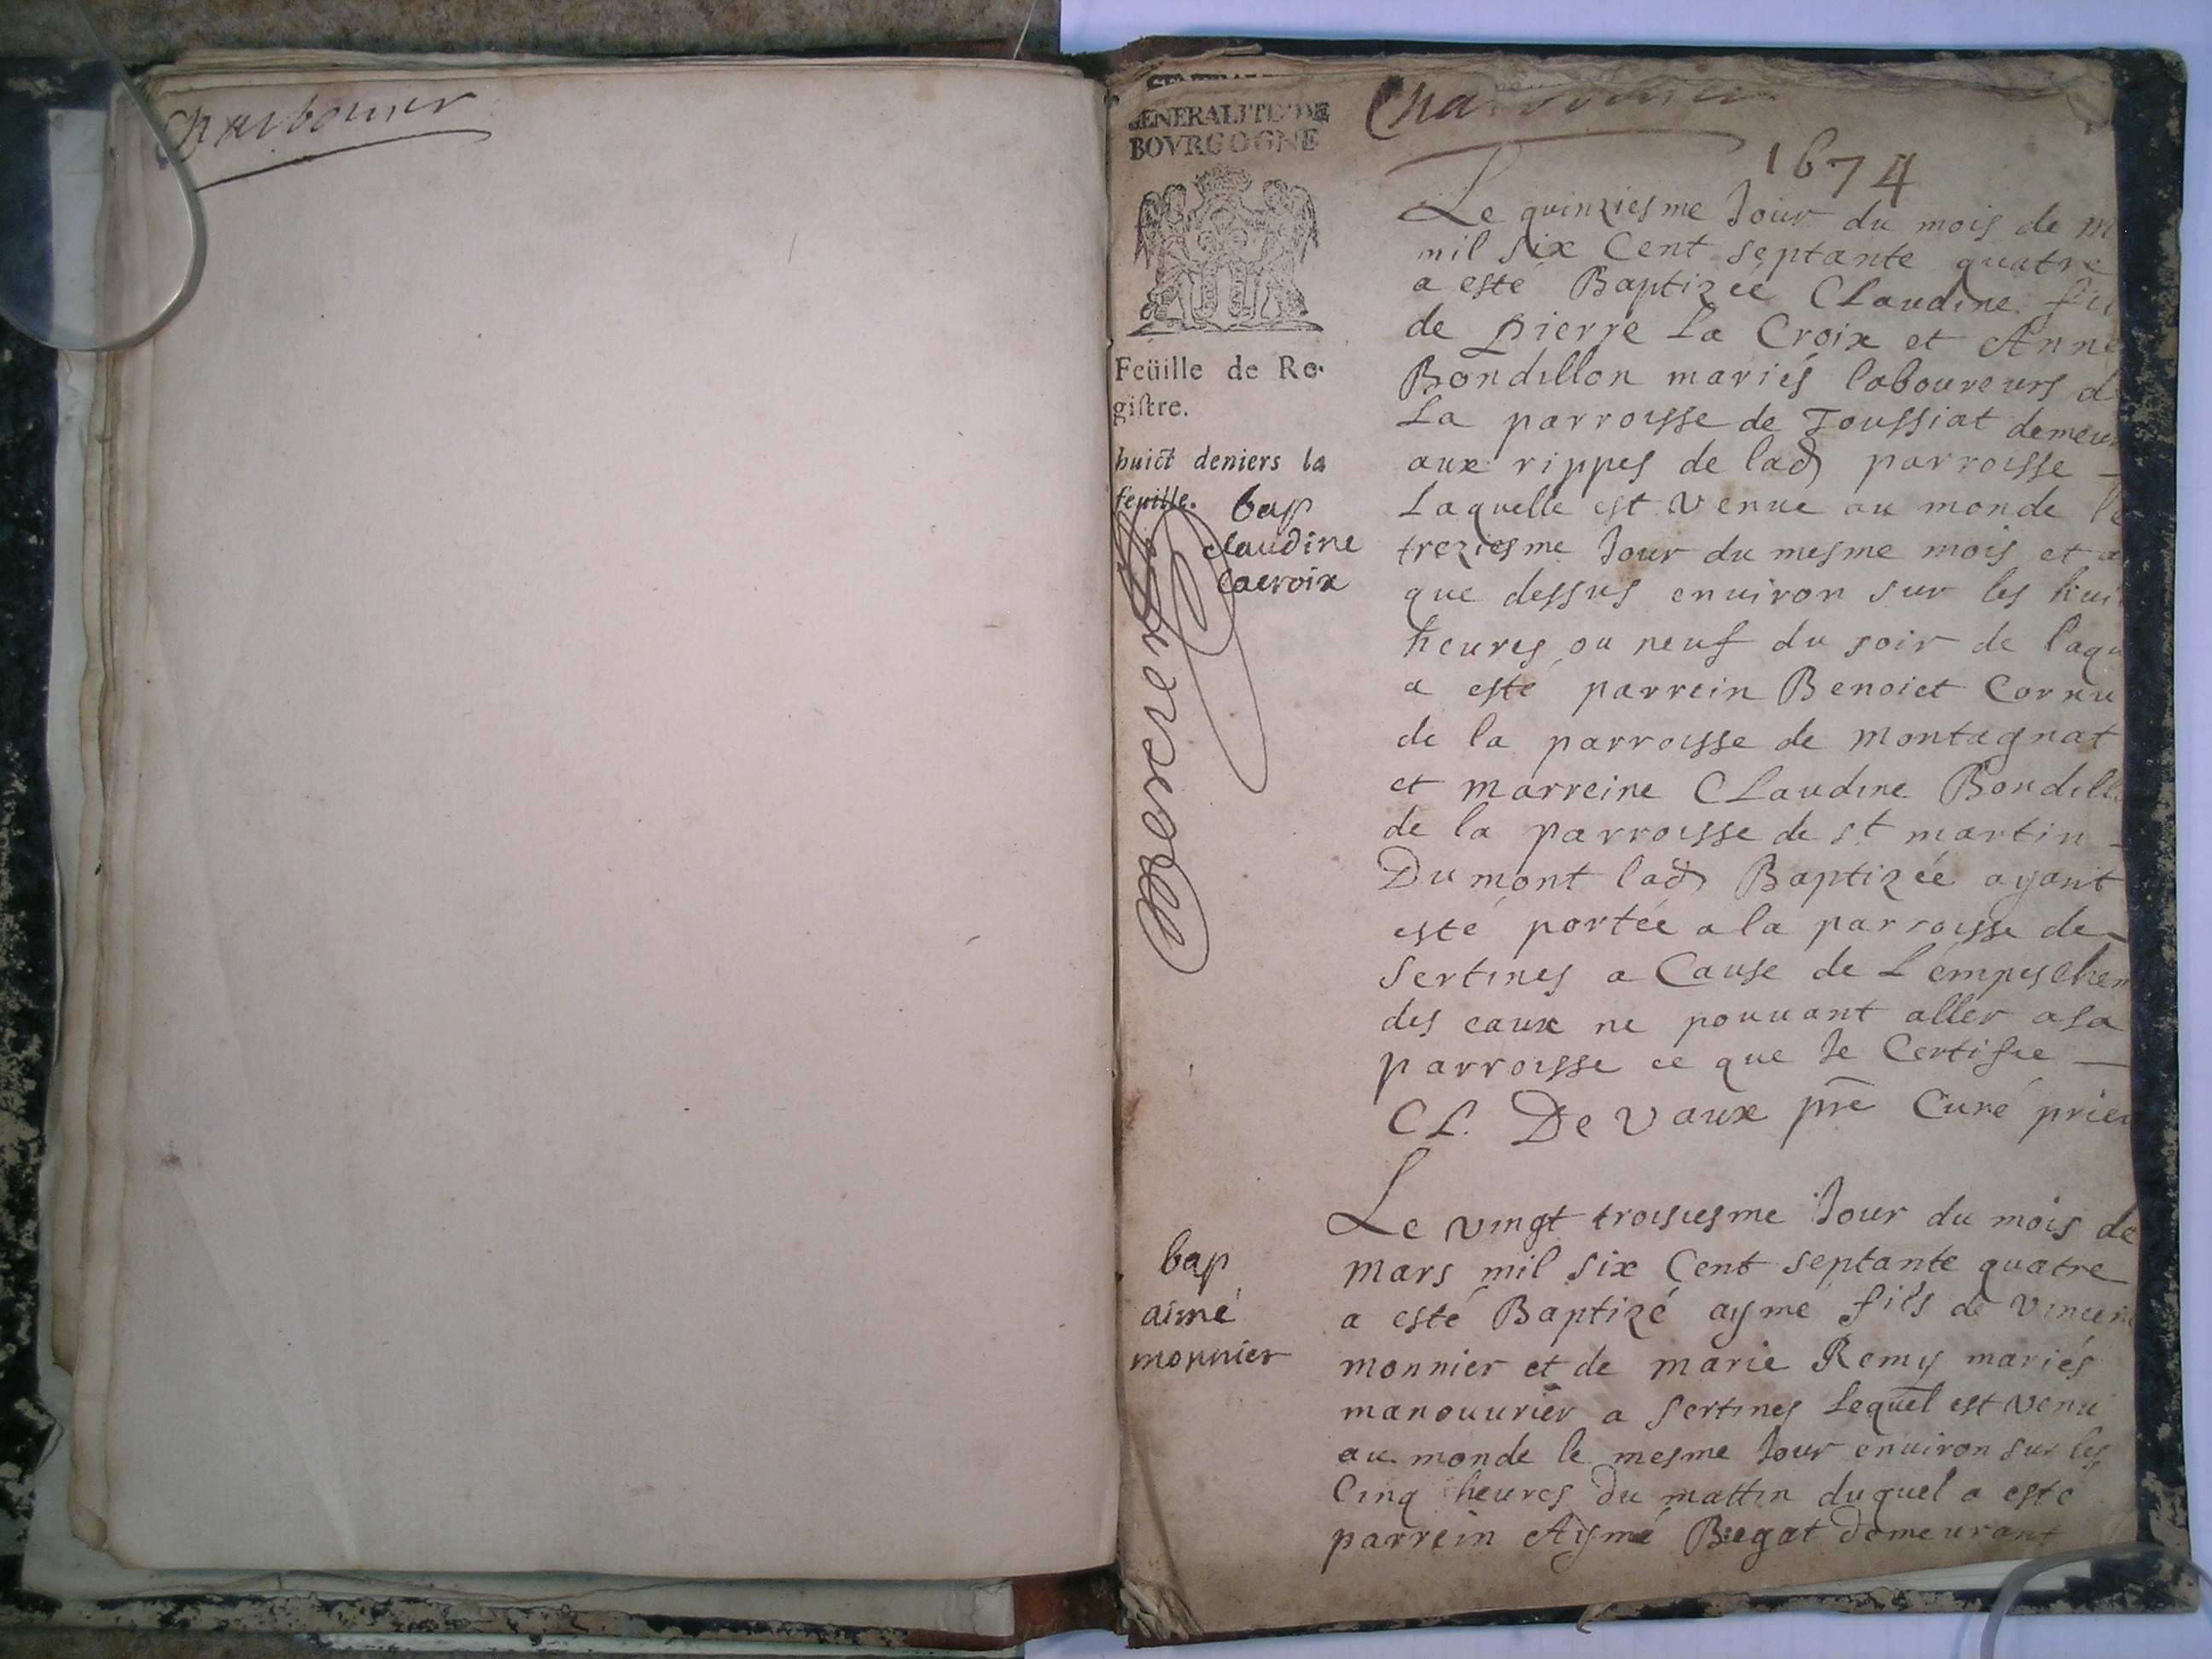 Charbonier
GENERALITE DE
BOVRGOGNE
Feüille de Re-
gistre.
huict deniers la
feuille.
bap
claudine
lacroix
1674
Le quinziesme Jour du mois de m
mil six Cent septante quatre
a esté Baptizéé CLaudine fil
de pierre La Croix et Anne
Bondillon mariés laboureurs d
La parroisse de Toussiat demeur
aux rippes de lad parroisse -
Laquelle est venue au monde le
treziesme Jour du mesme mois et a
que dessus enuiron sur les huit
heures ou neuf du soir de laqu
a esté parrein Benoict Cornu
de la parroisse de montagnat
et marreine CLaudine Bondill
de la parroisse de st martin -
Du mont lad Baptizéé ayant
esté portéé a la parroisse de -
Sertines a Cause de L'empeschem
des eaux ne pouuant aller a sa
parroisse ce que Je Certifie -
CL. De Vaux pre Curé prieu
bap
aimé
monnier
Le vingt troisiesme Jour du mois de
mars mil six Cent septante quatre
a esté Baptizé aymé fils de vincen
monnier et de marie Remy mariés
manouurier a sertines Lequel est venu
au monde le mesme Jour enuiron sur les
Cinq heures du mattin duquel a esté
parrein Aymé Bregat demeurant